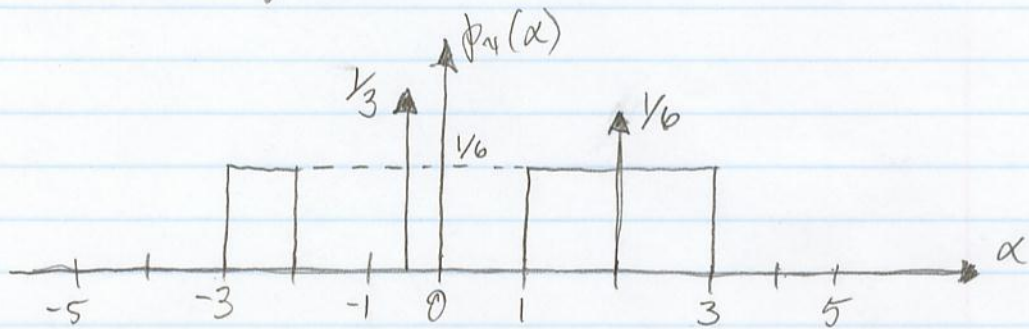 pᵣ(α)
1/3
1/6
1/6
α
-5 -3 -1 0 1 3 5